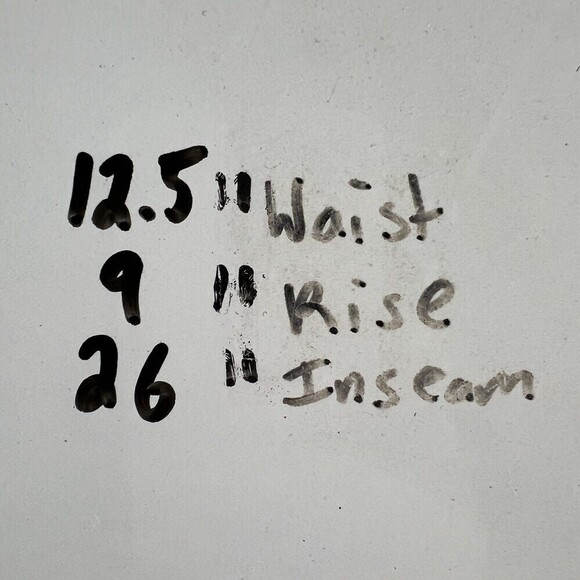 12.5" Waist
9 " Rise
26 " Inseam